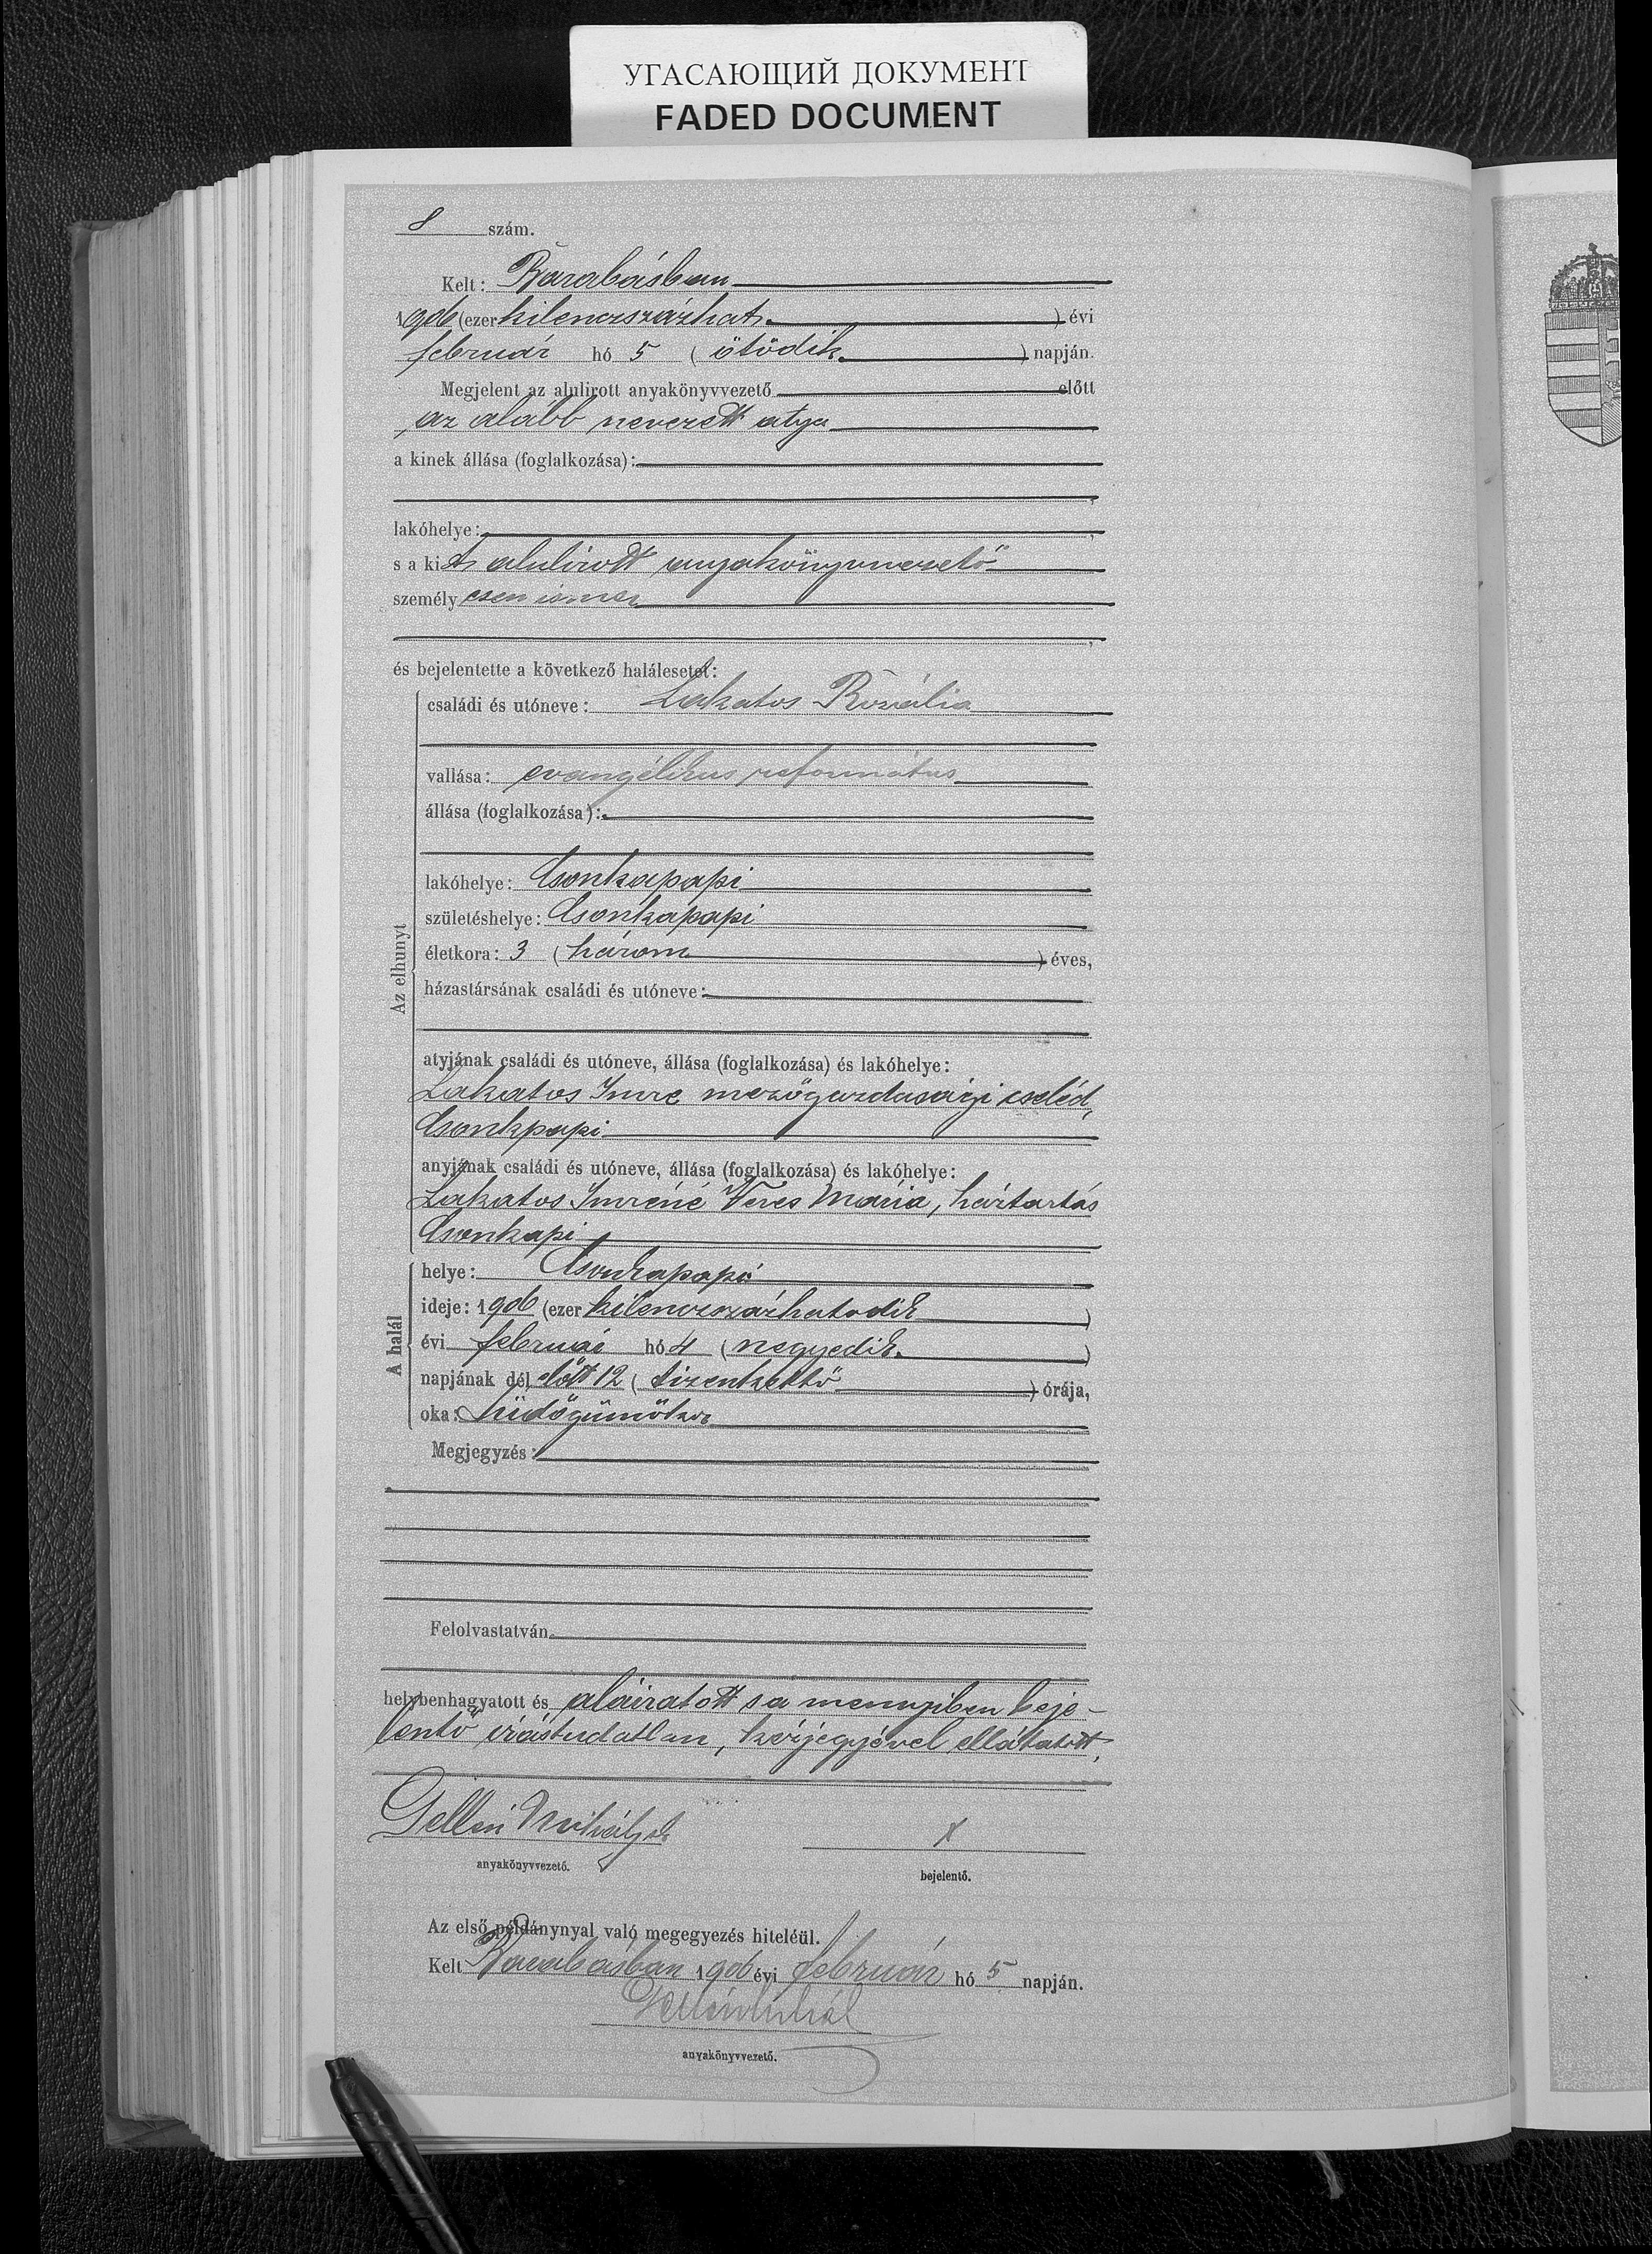 УГАСАЮЩИЙ ДОКУМЕНТ
FADED DOCUMENT
8 szám.
Kelt: Barabásban
1906 (ezer kilenczszázhat ) évi
február hó 5 ( ötödik ) napján.
Megjelent az alulirott anyakönyvvezető előtt
az alább nevezett atya
a kinek állása (foglalkozása):
lakóhelye:
s a kit alulirott anyakönyvvezető
személyesen ismer
és bejelentette a következő halálesetet:
Az elhunyt
családi és utóneve: Lakatos Rozália
vallása: evangélikus református
állása (foglalkozása):
lakóhelye: Csonkapapi
születéshelye: Csonkapapi
életkora: 3 ( három ) éves,
házastársának családi és utóneve:
atyjának családi és utóneve, állása (foglalkozása) és lakóhelye:
Lakatos Imre mezőgazdasági cseléd,
Csonkpapi
anyjának családi és utóneve, állása (foglalkozása) és lakóhelye:
Lakatos Imréné Veres Mária, háztartás
Csonkapi
A halál
helye: Csonkapapi
ideje: 1906 (ezer kilenczszázhatodik )
évi február hó 4 ( negyedik )
napjának dél előtt 12 ( tizenkettő ) órája,
oka: tüdőgümőkor
Megjegyzés:
Felolvastatván
helybenhagyatott és aláiratott s a mennyiben beje-
lentő irástudatlan, kézjegyével ellátatott,
Gellén Mihály
x
anyakönyvvezető.
bejelentő.
Az első példánynyal való megegyezés hiteléül.
Kelt Barabásban 1906 évi február hó 5 napján.
Gellén Mihál
anyakönyvvezető.